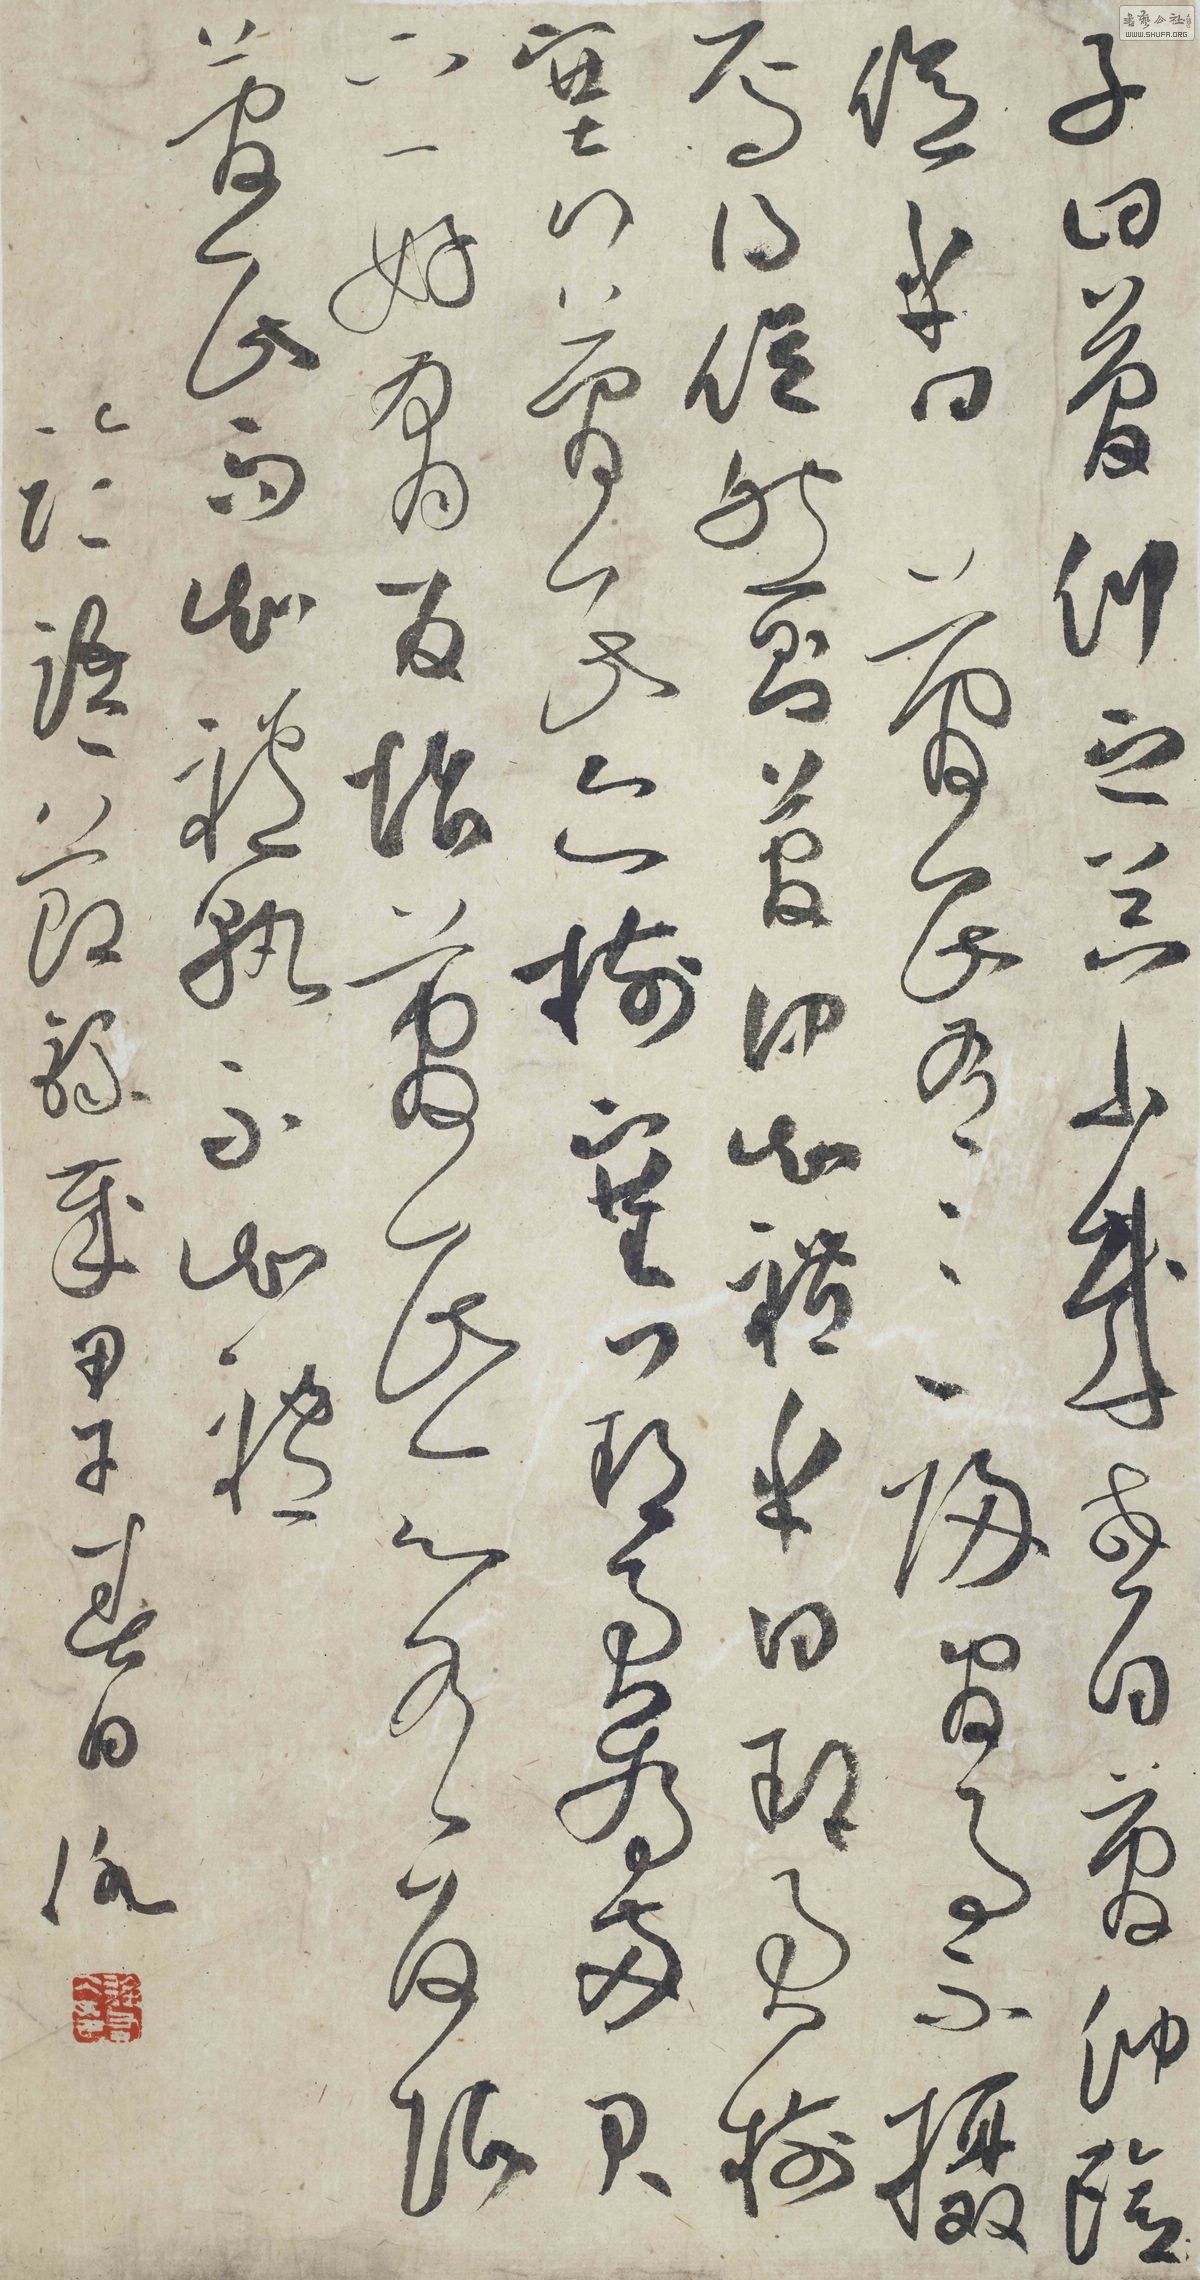 子曰管仲之器小哉或曰管仲
儉乎曰管氏有三歸官事不攝
焉得儉然則管仲知禮乎曰邦君樹
塞門管氏亦樹塞門邦君為兩君
之好有反坫管氏亦有反坫
管氏而知禮孰不知禮
論語節錄歲甲子春日
书艺公社
WWW.SHUFA.ORG